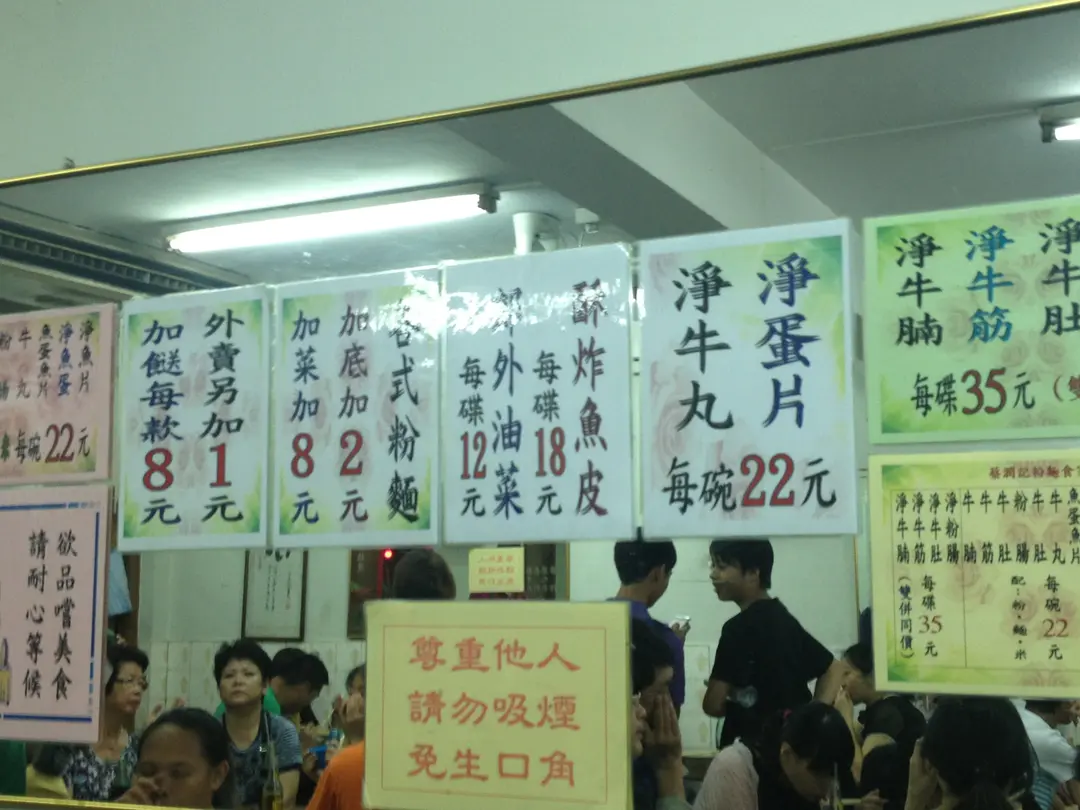 魚片
淨魚蛋
魚蛋魚片
每碗22元
欲品嚐美食
請耐心等候
外賣另加1元
加餸每款8元
各式粉麵
加底加2元
加菜加8元
酥炸魚皮
每碟18元
郊外油菜
每碟12元
淨蛋片
淨牛丸
每碗22元
淨牛肚
淨牛筋
淨牛腩
每碟35元
蔡潤記粉麵食
牛丸
牛肚
粉腸
牛肚
牛筋
牛腩
每碗22元
配：粉、麵、米
淨粉腸
淨牛肚
淨牛筋
淨牛腩
每碟35元
（雙併同價）
尊重他人
請勿吸煙
免生口角